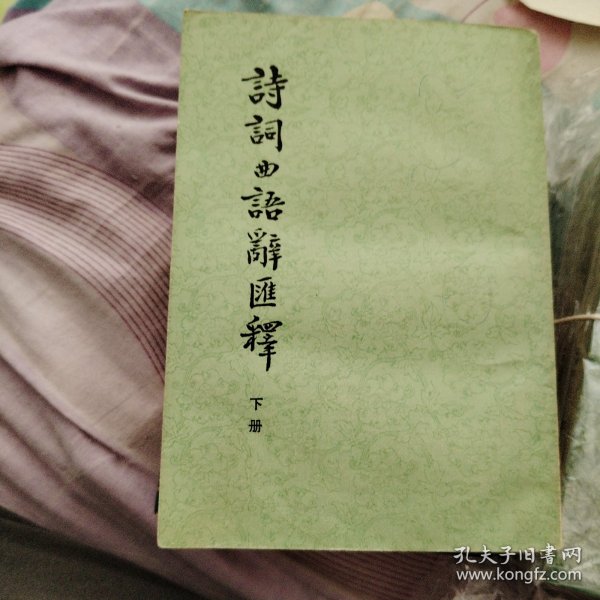 詩詞曲語辭匯釋
下册
孔夫子旧書网
www.kongfz.com